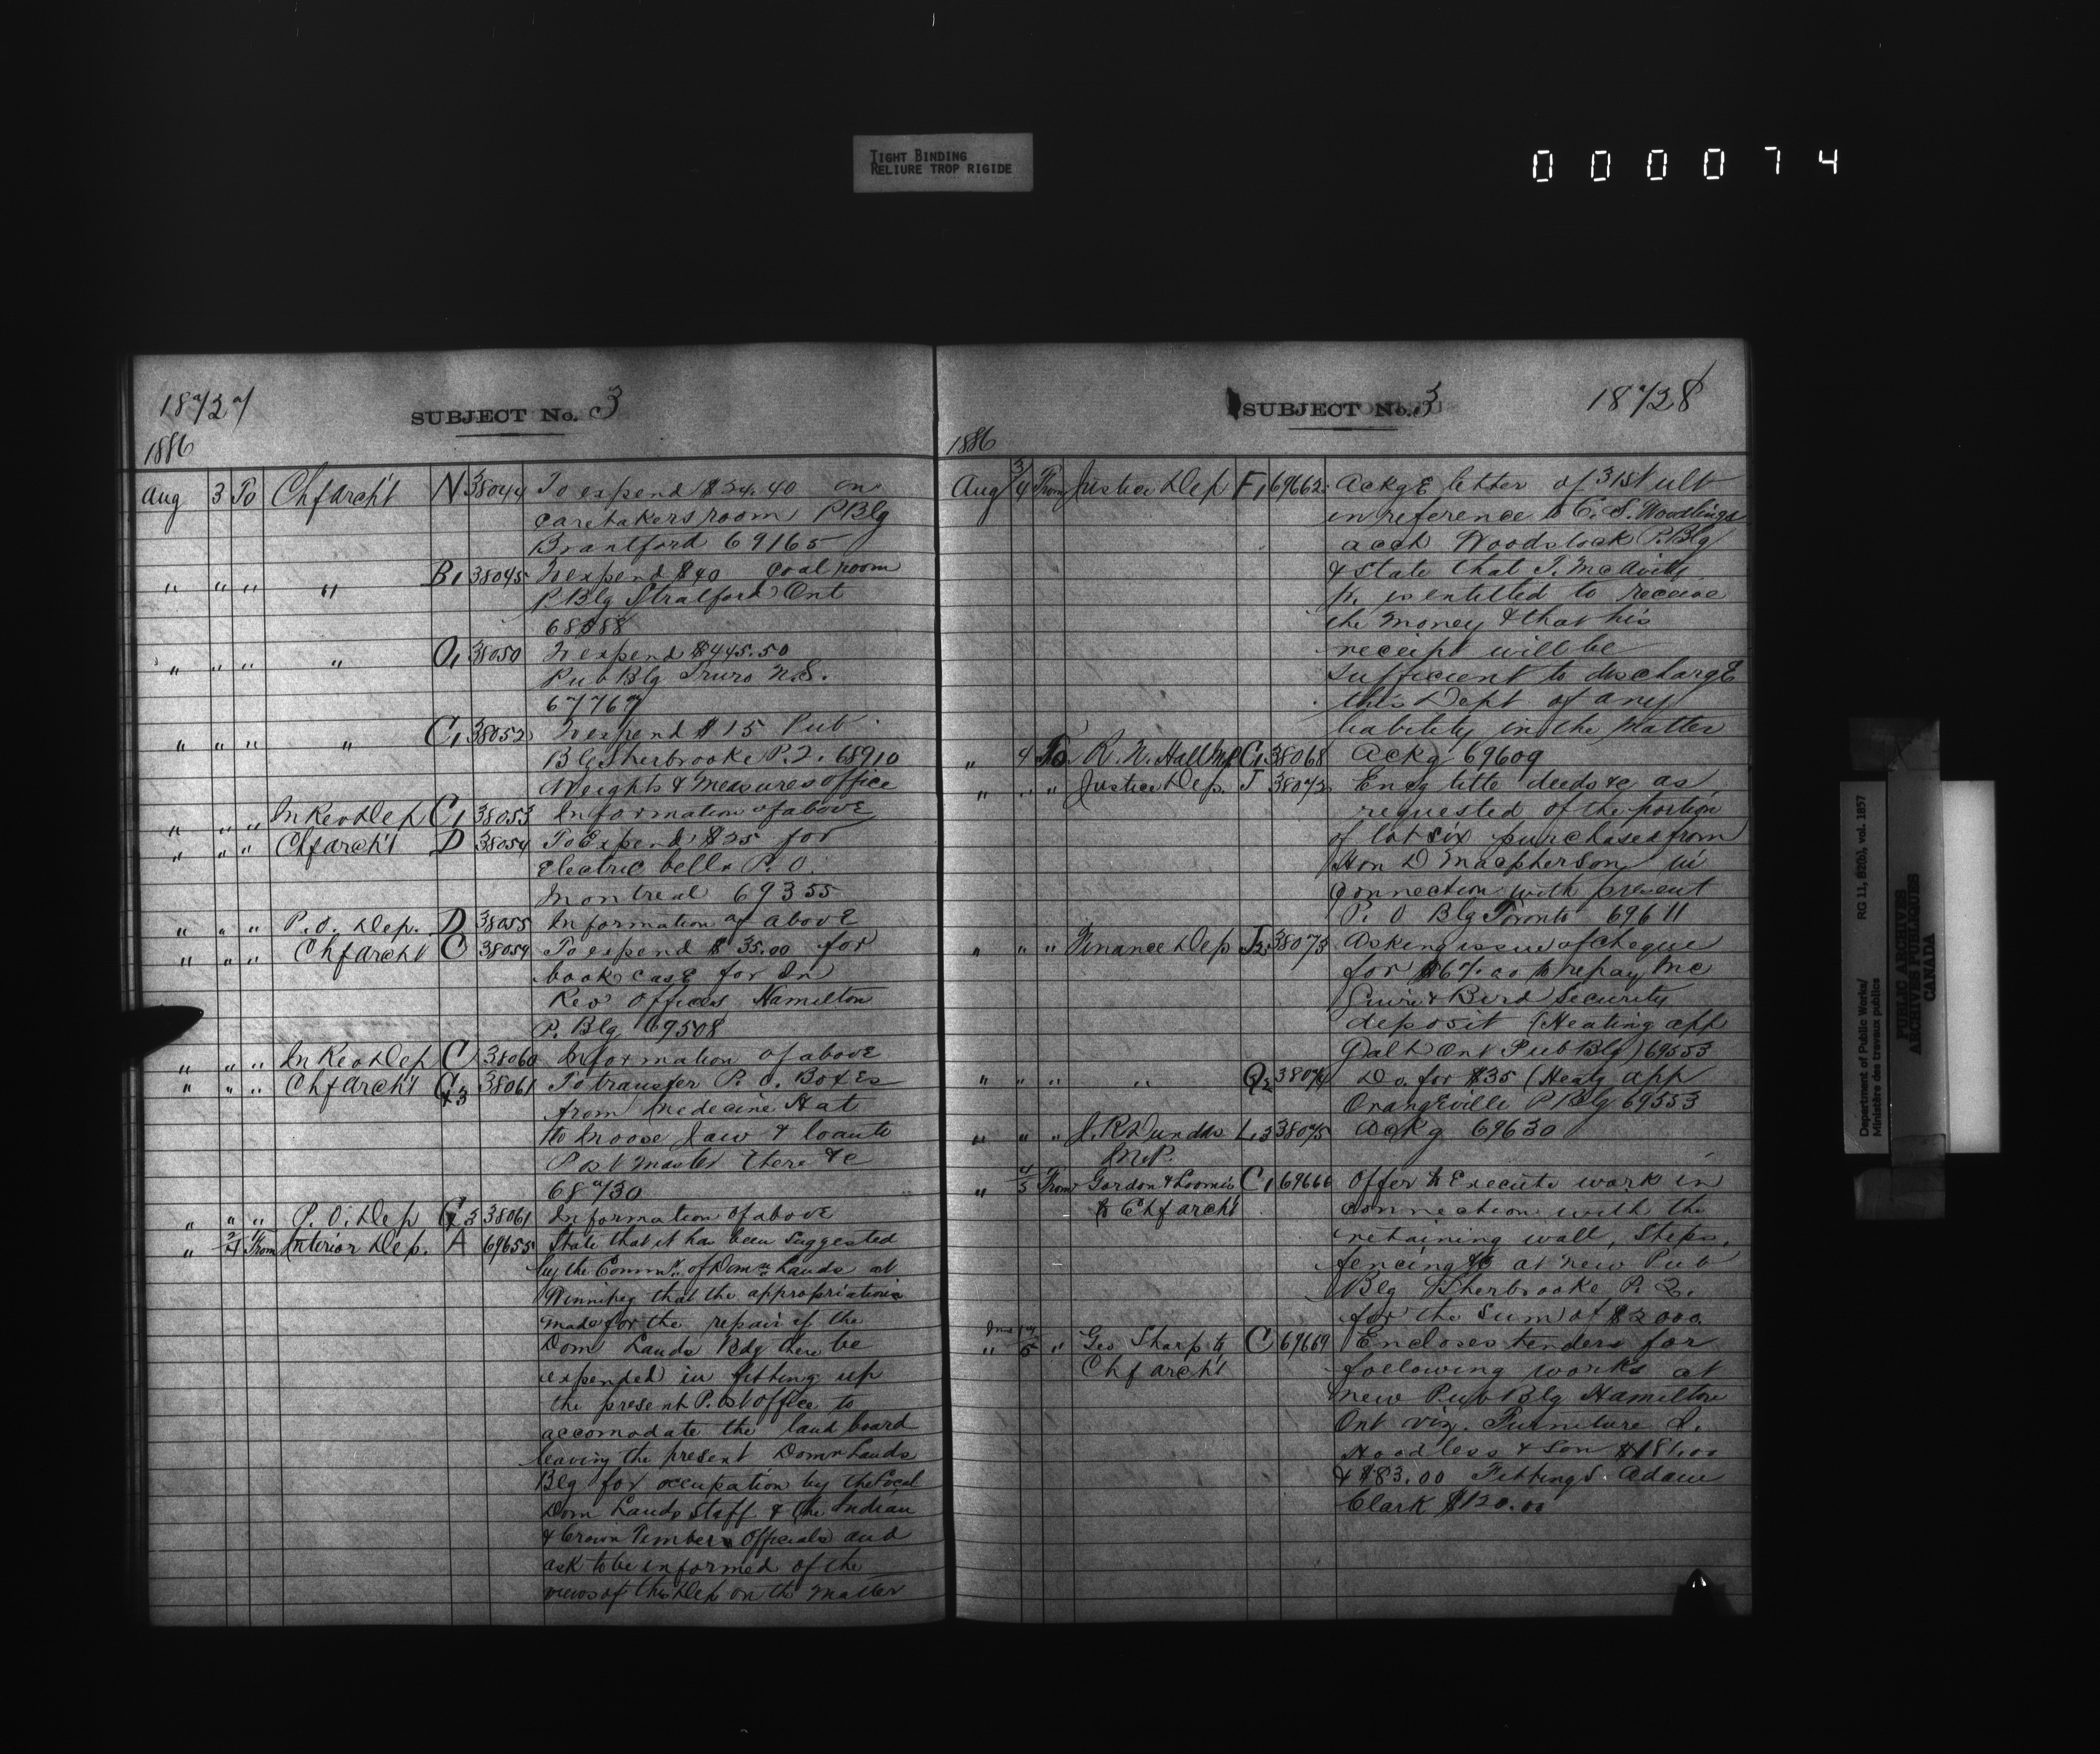 TIGHT BINDING
RELIURE TROP RIGIDE
000074
18727
SUBJECT No. 3
1886
Aug 3 To Chf Arch't N 38044 To expend $24.40 on
caretakers room P Blg
Brantford 69165
" " " " B1 38045 To expend $40 Coal room
P Blg Stratford Ont
68588
" " " " O1 38050 To expend $445.50
Pub Blg Truro N.S.
67767
" " " " C1 38052 To expend $15 Pub
Blg Sherbrooke P.Q. 68910
Weights & Measures office
" " " In Rev Dep C1 38053 Information of above
" " " Chf Arch't D 38054 To Expend $25 for
Electric bells P.O.
Montreal 69355
" " " P.O. Dep. D 38055 Information of above
" " " Chf Arch't C 38059 To expend $35.00 for
book case for In
Rev Offices Hamilton
P. Blg 69508
" " " In Rev Dep C 38060 Information of above
" " " Chf Arch't G3 38061 To transfer P.O. Boxes
from Medecine Hat
to Moose Jaw & locate
Post Master there &c
68730
" " " P.O. Dep G3 38061 Information of above
" 2/4 From Interior Dep. A 69655 State that it has been suggested
by the Commr. of Domn. Lands at
Winnipeg that the appropriation
made for the repair of the
Dom Lands Bdg there be
expended in fitting up
the present Post office to
accomodate the land board
leaving the present Domn Lands
Blg for occupation by the Local
Dom Lands Staff & the Indian
& Crown Timber Officials and
ask to be informed of the
views of this Dep on the matter
SUBJECT No. 3
18728
1886
Aug 3/4 From Justice Dep F1 69662 Ackge letter of 31st ult
in reference to C. S. Woodlings
acct Woodstock P. Blg
& state that T. McAvitty
is entitled to receive
the money & that his
receipt will be
sufficient to discharge
this Dept of any
liability in the matter
" 4 To R. N. Hall MP C1 38068 Ackg 69609
" " " Justice Dep. J 38072 Encg title deeds &c as
requested of the portion
of lot six purchased from
Hon D Macpherson in
connection with present
P. O Blg Toronto 69611
" " " Finance Dep J2 38073 Asking issue of cheque
for $67.00 to repay Mc
Guire & Bird Security
deposit (Heating app
Galt Ont Pub Blg) 69553
" " " " Q2 38074 Do. for $35 (Heatg app
Orangeville P Blg 69553
" " " J. R Dundas L3 38075 Ackg 69630
M.P.
" 4/5 From Gordon & Loomis C1 69666 Offer to Execute work in
to Chf Arch't
connection with the
retaining wall, steps,
fencing &c at new Pub
Blg Sherbrooke P. Q.
for the sum of $2000.
" " Geo Sharp to C 69669 Encloses tenders for
Chf Arch't
following works at
new Pub Blg Hamilton
Ont viz. Furniture J.
Hoodless & Son $186.00
& $83.00 Fittings Adam
Clark $120.00
Department of Public Works/
Ministère des travaux publics
RG 11, B2(b), vol. 1857
PUBLIC ARCHIVES
ARCHIVES PUBLIQUES
CANADA